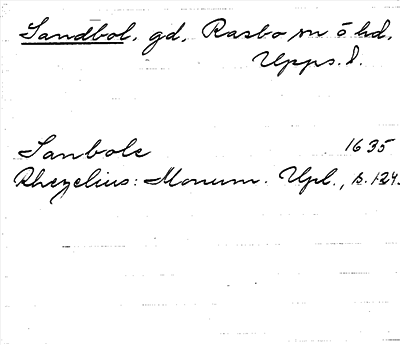 Sandbol, gd, Rasbo sn ö hd,
Upps. l.
Sanbole 1635
Rhezelius: Monum. Upl., s. 124.